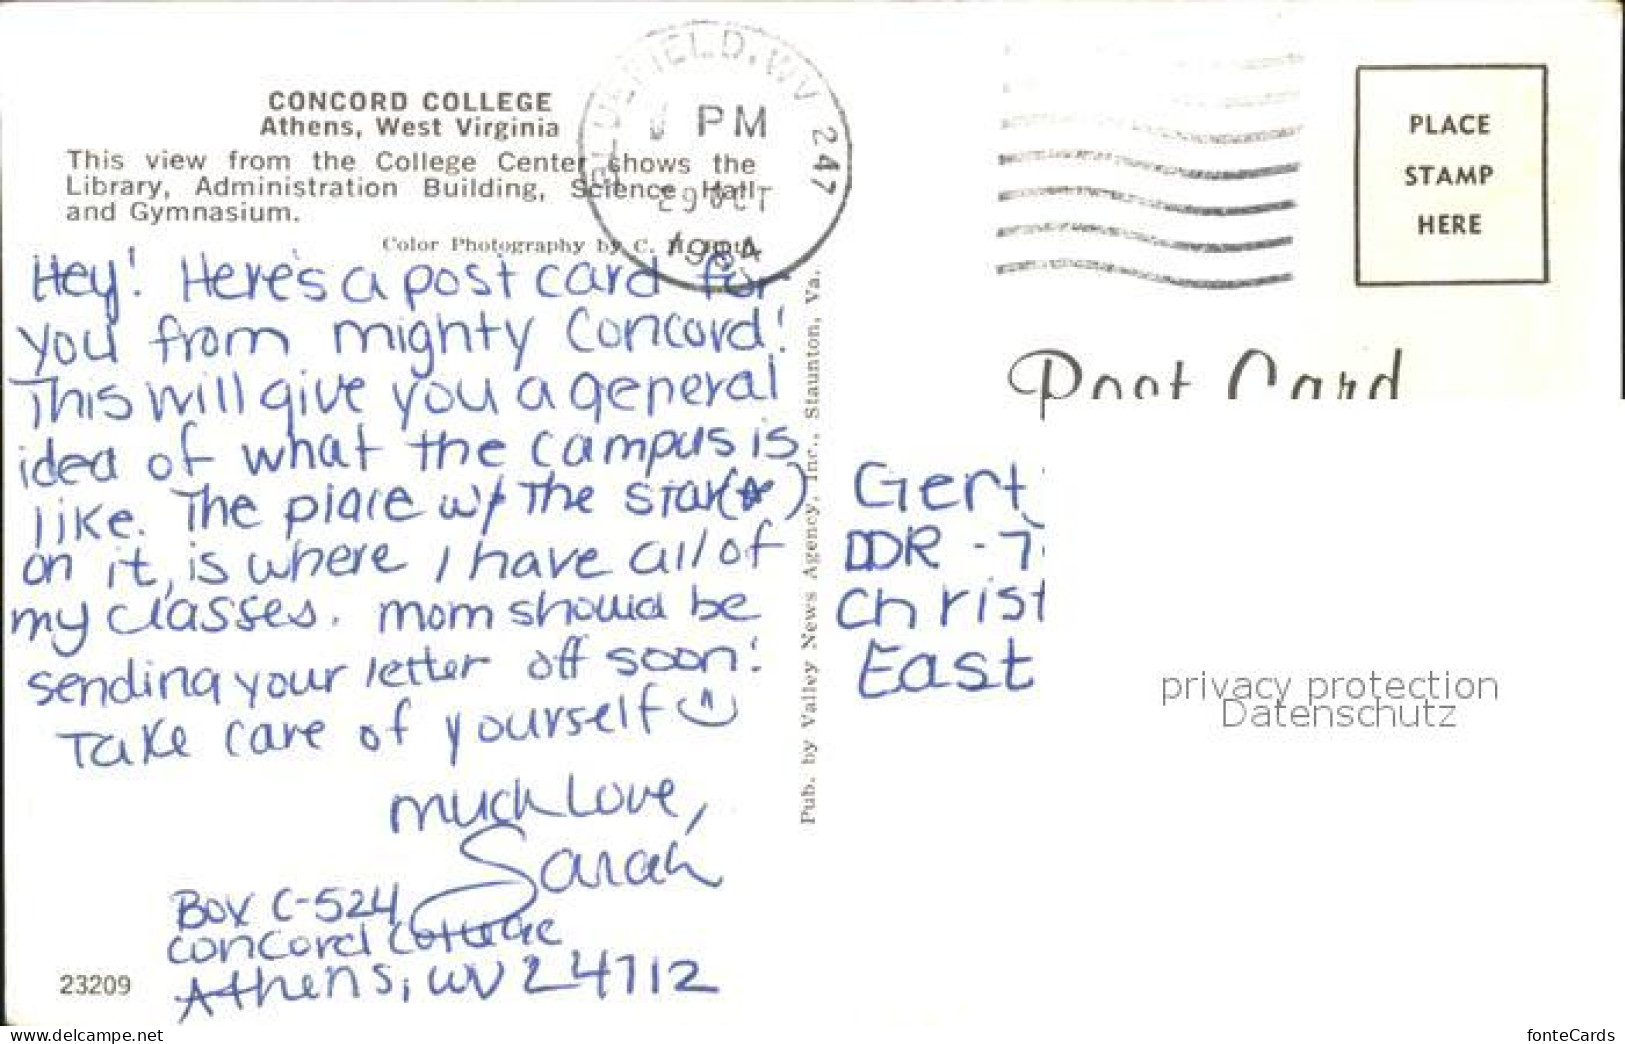 CONCORD COLLEGE
Athens, West Virginia
This view from the College Center shows the
Library, Administration Building, Science Hall
and Gymnasium.
Color Photography by C. H.
BLUEFIELD, WV 247
PM
29 OCT
1984
Hey! Here's a post card for
you from mighty Concord!
This will give you a general
idea of what the campus is
like. The place w/ the star(☆)
on it, is where I have all of
my classes. Mom should be
sending your letter off soon!
Take care of yourself
Much Love,
Sarah
Box C-524
Concord College
Athens, WV 24712
23209
Pub. by Valley News Agency, Inc., Staunton, Va.
PLACE
STAMP
HERE
Post Card
Gert
DDR - 7
Christ
East
privacy protection
Datenschutz
www.delcampe.net
fonteCards